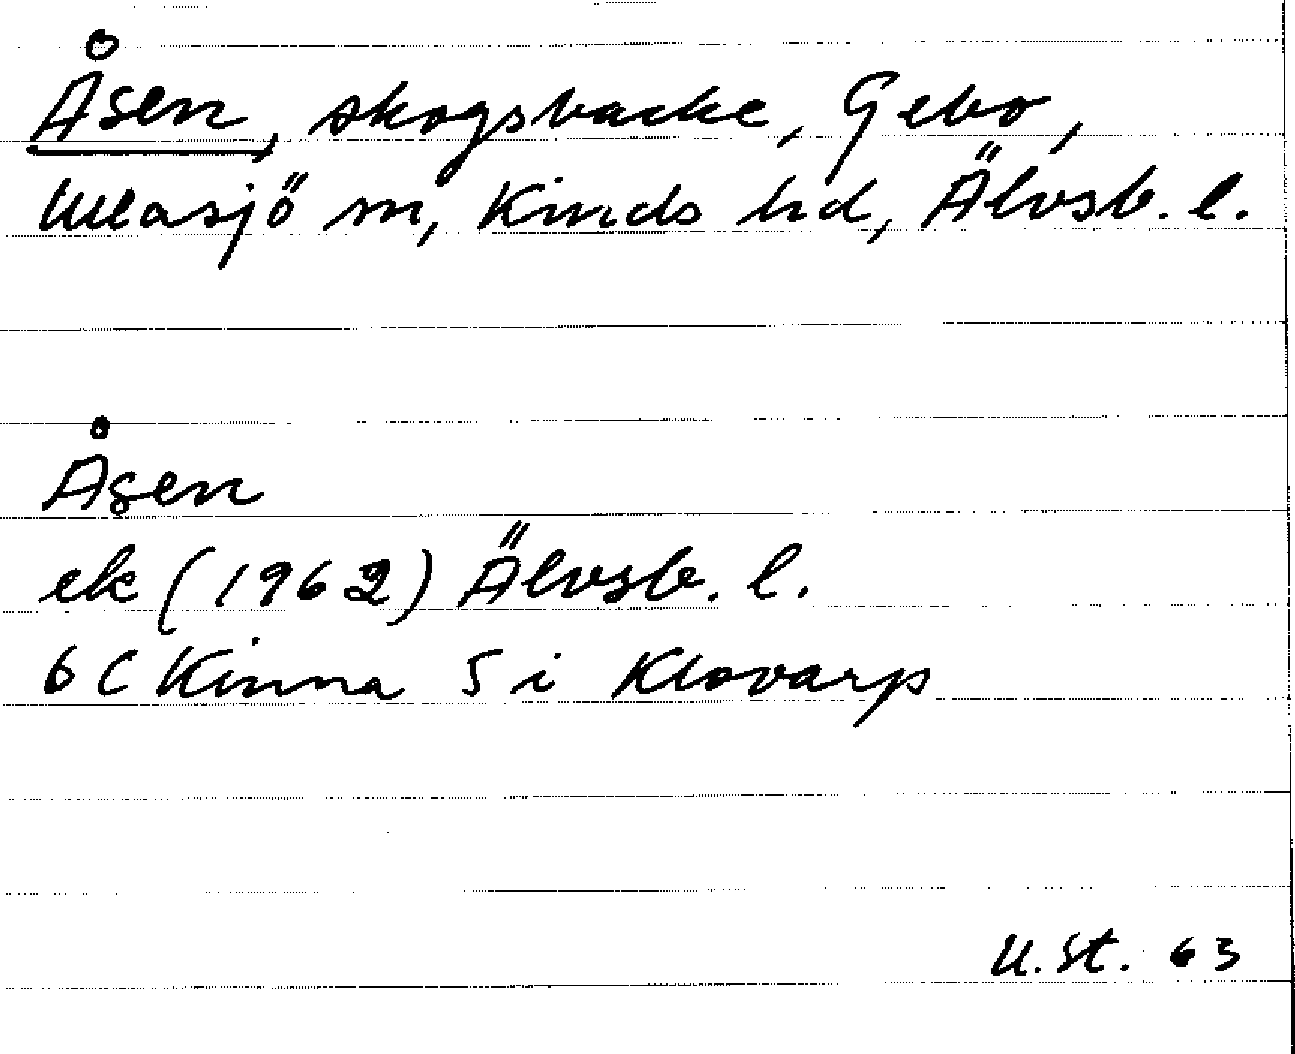 Åsen, skogsbacke, Gebo,
Ullasjö sn, Kinds hd, Älvsb. l.
Åsen
ek (1962) Älvsb. l.
6C Kinna 5i Klovarp
U. St. 63